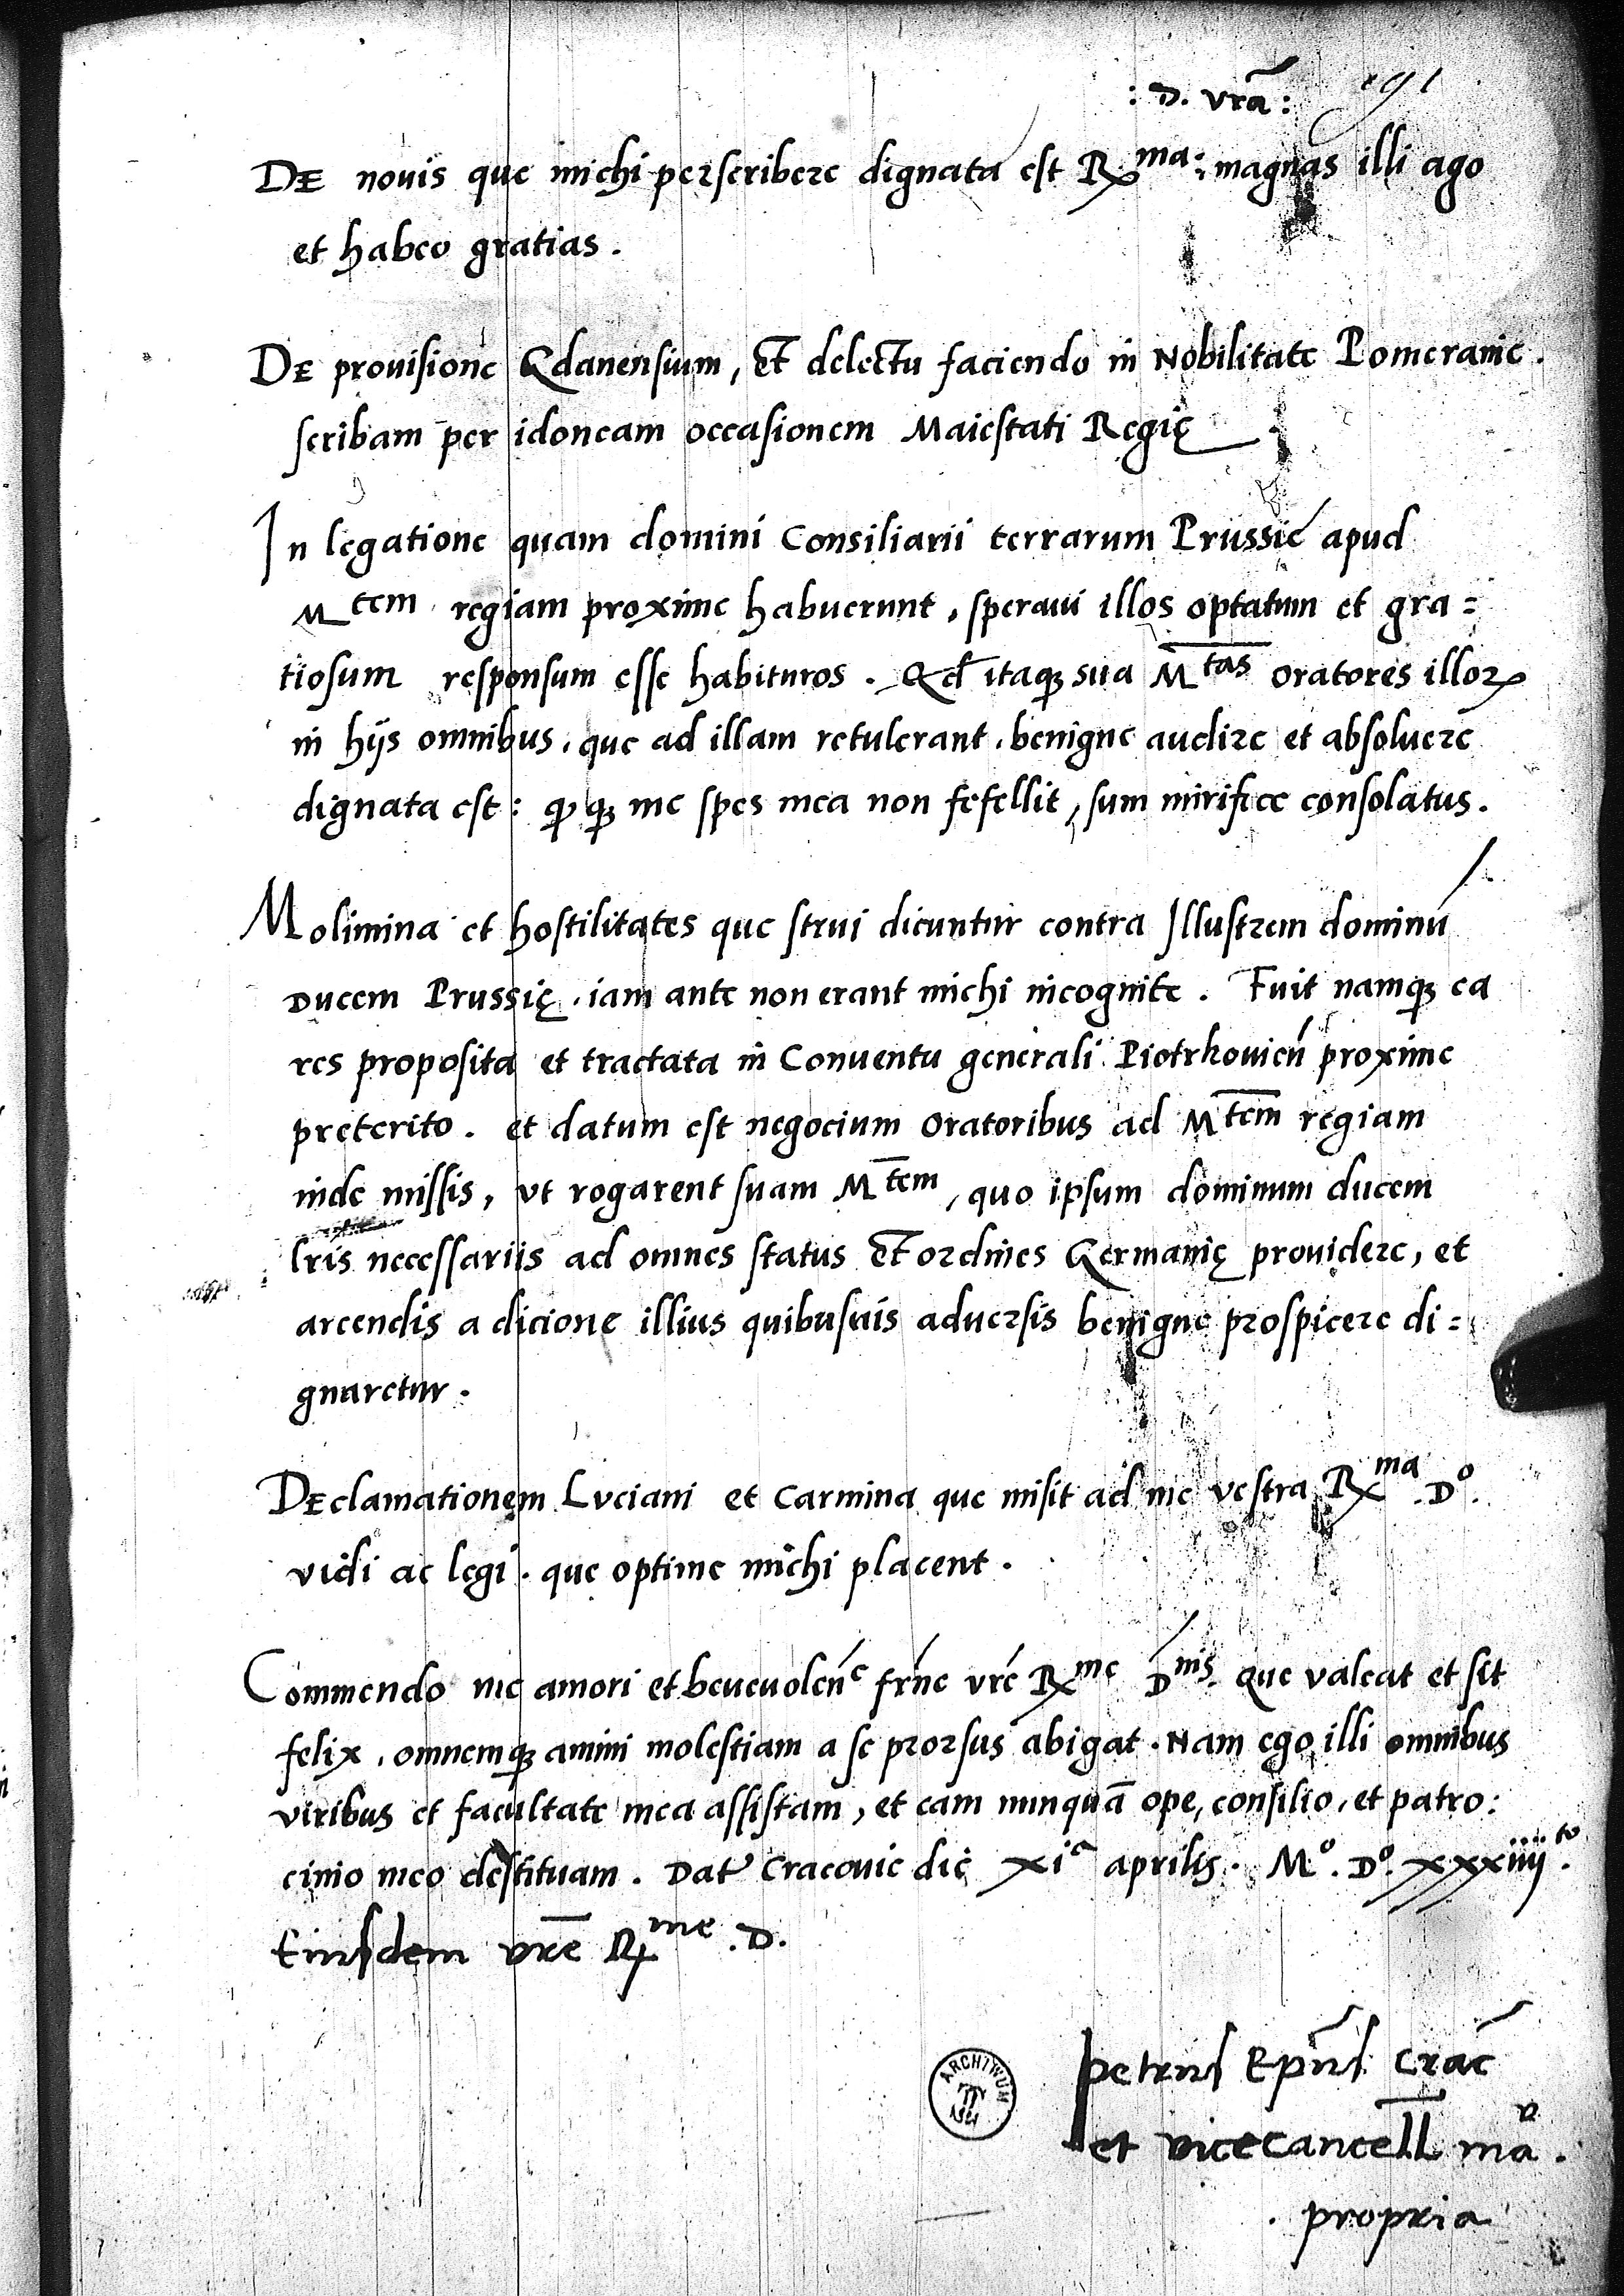 : D. vrā : 191
DE nouis que michi perscribere dignata est Rma: magnas illi ago
et habeo gratias.
DE prouisione Gdanensium, Et delectu faciendo in Nobilitate Pomeranie.
scribam per idoneam occasionem Maiestati Regię
In legatione quam domini Consiliarii terrarum Prussie apud
Mtem regiam proxime habuerunt, speraui illos optatum et gra=
tiosum responsum esse habituros. Qd itaqꝫ sua Mtas oratores illoꝝ
in hijs omnibus, que ad illam retulerant, benigne audire et absoluere
dignata est: qꝫ me spes mea non fefellit, sum mirifice consolatus.
Molimina et hostilitates que strui dicuntur contra Illustrem dominū
Ducem Prussię, iam ante non erant michi incognite. Fuit namqꝫ ea
res proposita et tractata in Conuentu generali Piotrkouien̄ proxime
preterito. et datum est negocium oratoribus ad Mtem regiam
inde missis, vt rogarent suam Mtem, quo ipsum dominum ducem
lris necessariis ad omnes status Et ordines Germanię prouidere, et
arcendis a dicione illius quibusuis aduersis benigne prospicere di=
gnaretur.
DEclamationem Luciani et Carmina que misit ad me vestra Rma. Do.
vidi ac legi. que optime michi placent.
Commendo me amori et beneuolen̄e frn̄e vrē Rme Dnis. que valeat et sit
felix, omnemqꝫ animi molestiam a se prorsus abigat. Nam ego illi omnibus
viribus et facultate mea assistam, et eam nunquā ope, consilio, et patro:
cinio meo destituam. Dat Cracouie die xia aprilis. Mo. Do. xxxiiijto.
Eiusdem vrē Rme .D.
petrus Epūs Crac̄
et vicecancell mā.
propria
ARCHIWUM